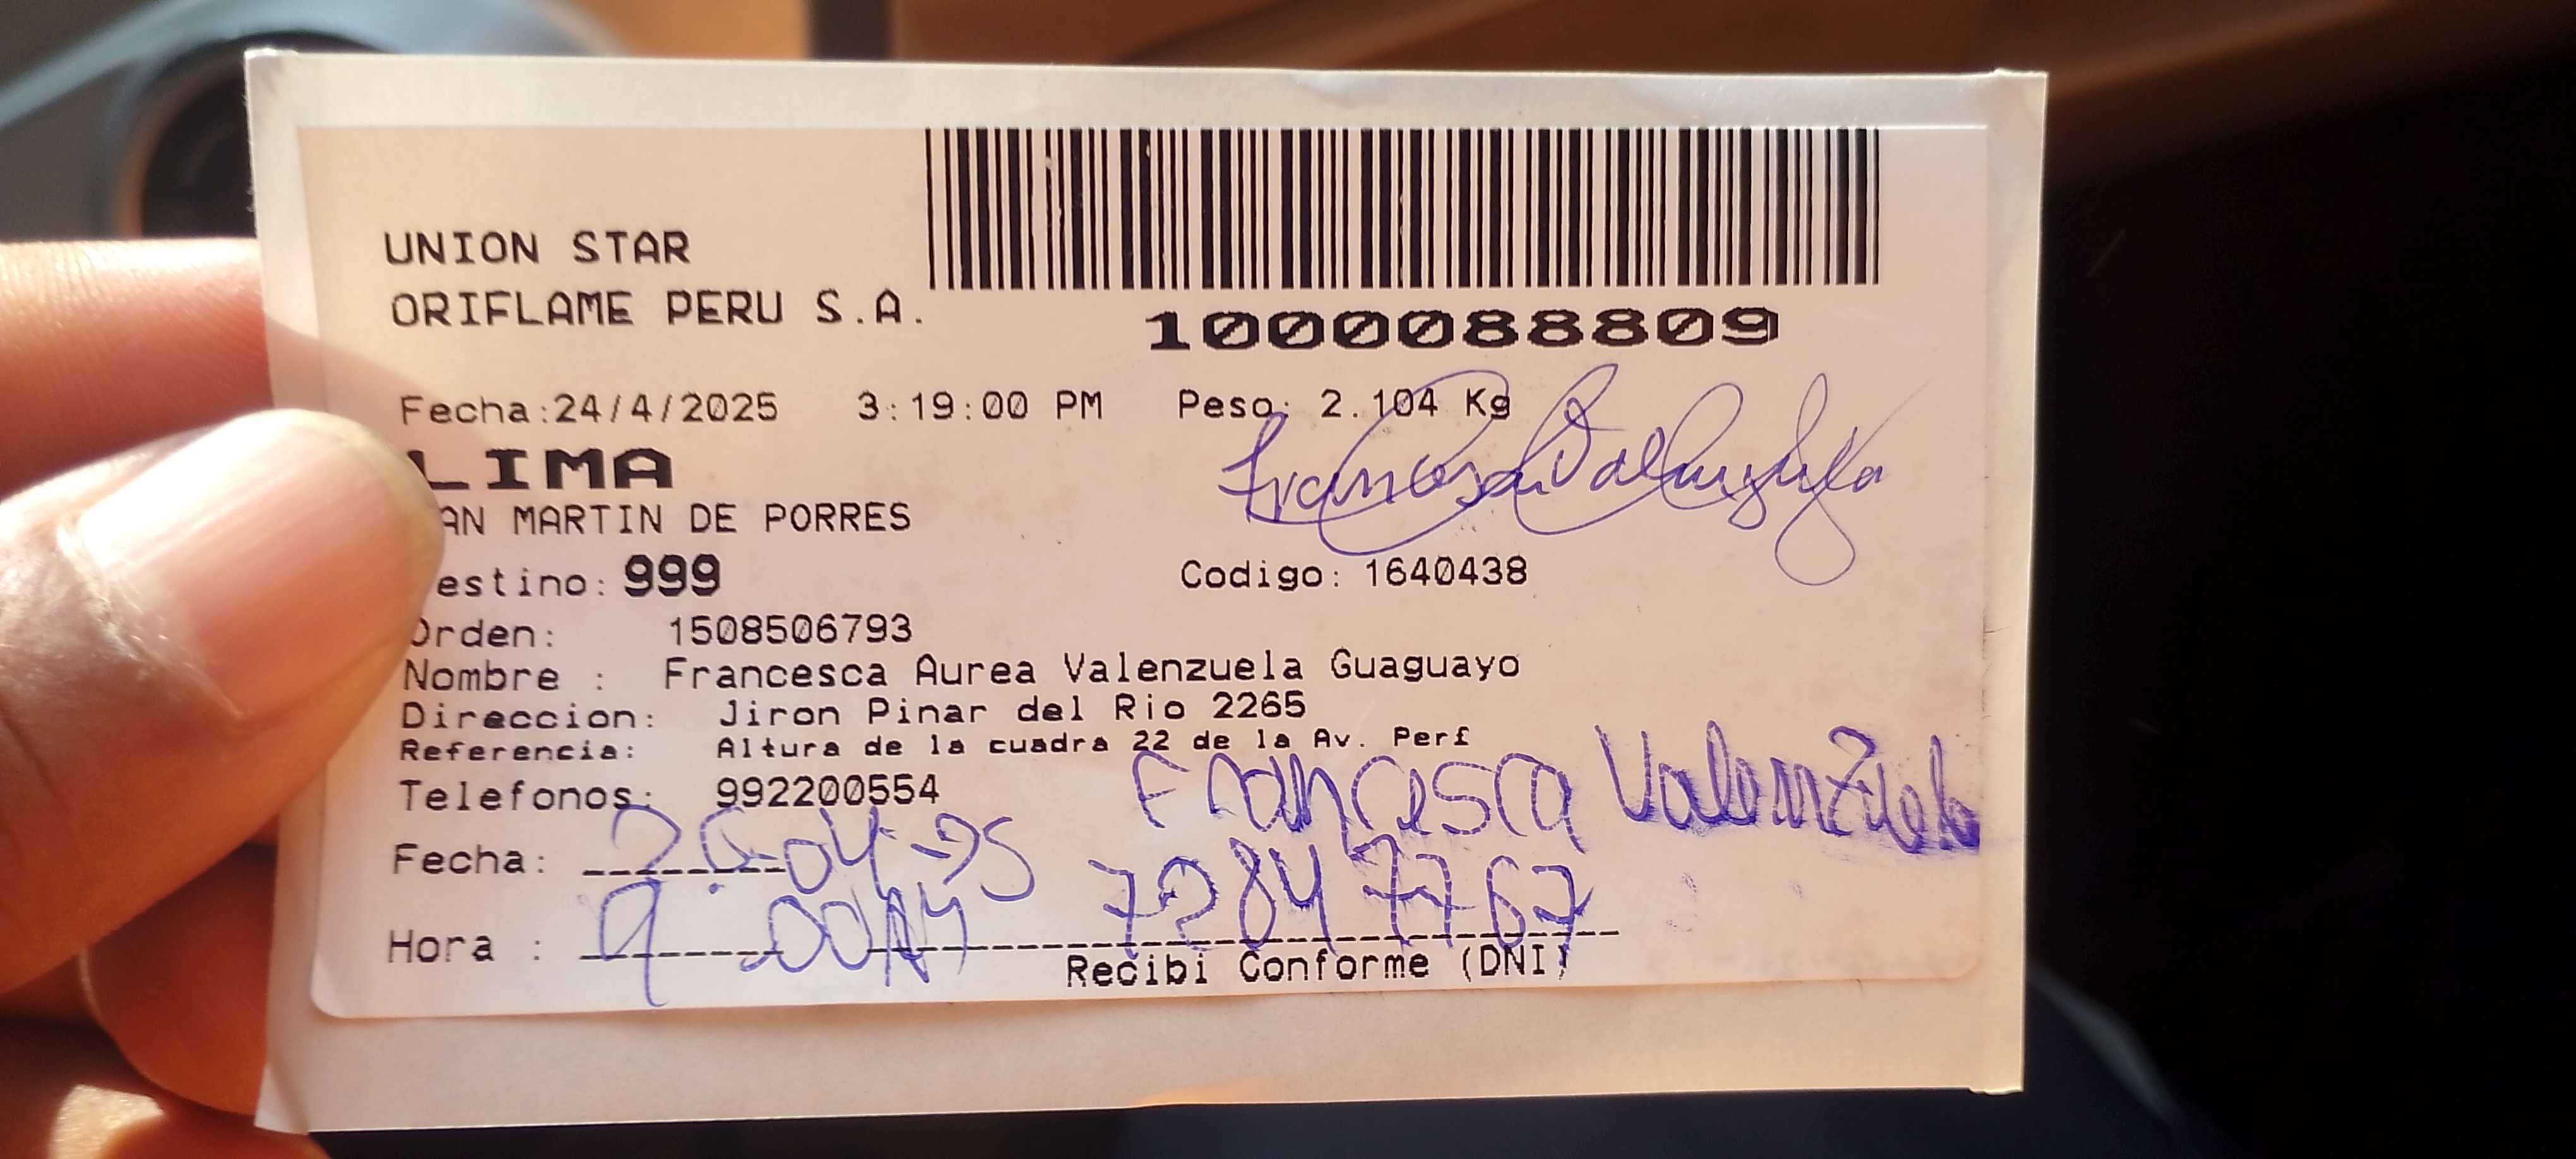 UNION STAR
ORIFLAME PERU S.A.
1000088809
Fecha:24/4/2025 3:19:00 PM Peso: 2.104 Kg
LIMA
Francesca Valenzuela
AN MARTIN DE PORRES
estino: 999 Codigo: 1640438
Orden: 1508506793
Nombre : Francesca Aurea Valenzuela Guaguayo
Direccion: Jiron Pinar del Rio 2265
Referencia: Altura de la cuadra 22 de la Av. Perf
Telefonos: 992200554
Francesca Valenzuela
Fecha: -04-25
72847767
Hora : 9
Recibi Conforme (DNI)